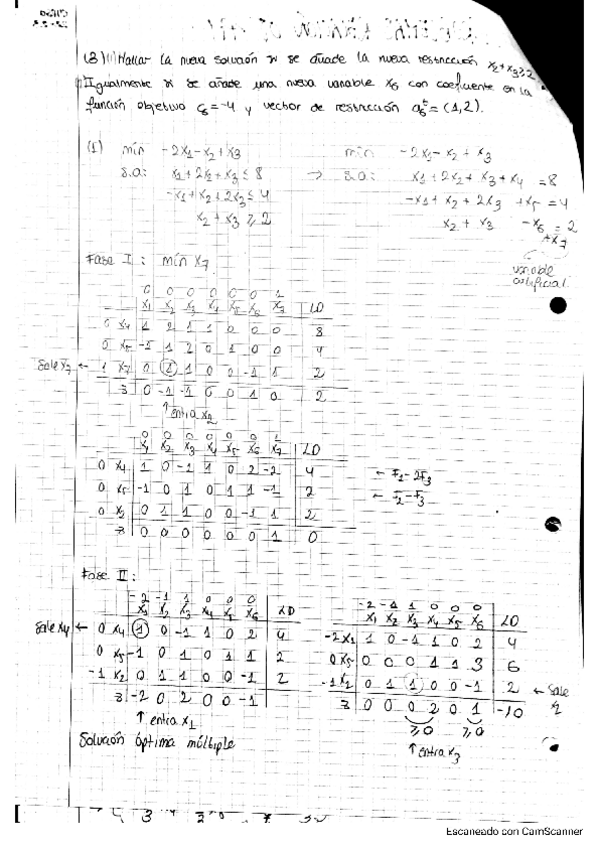 (3) (1) Hallar la nueva solución si se añade la nueva restricción x2+x3≥2
Igualmente si se añade una nueva variable x6 con coeficiente en la
función objetivo c6=-4 y vector de restricción a6^t=(1,2).
(1) mín -2x1-x2+x3 mín -2x1-x2+x3
s.a: x1+2x2+x3≤8 → s.a: x1+2x2+x3+x4=8
-x1+x2+2x3≤4 -x1+x2+2x3+x5=4
x2+x3≥2 x2+x3-x6=2
+x7
variable
artificial
Fase I: mín x7
0 0 0 0 0 0 1
x1 x2 x3 x4 x5 x6 x7 LD
0 x4 1 2 1 1 0 0 0 8
0 x5 -1 1 2 0 1 0 0 4
Sale x7 ← 1 x7 0 1 1 0 0 -1 1 2
z 0 -1 -1 0 0 1 0 2
↑ entra x2
0 0 0 0 0 0 1
x1 x2 x3 x4 x5 x6 x7 LD
0 x4 1 0 -1 1 0 2 -2 4 ← F1-2F3
0 x5 -1 0 1 0 1 1 -1 2 ← F2-F3
0 x2 0 1 1 0 0 -1 1 2
z 0 0 0 0 0 0 1 0
Fase II:
-2 -1 1 0 0 0
x1 x2 x3 x4 x5 x6 LD
Sale x4 ← 0 x4 1 0 -1 1 0 2 4
0 x5 -1 0 1 0 1 1 2
-1 x2 0 1 1 0 0 -1 2
z -2 0 2 0 0 -1
↑ entra x1
-2 -1 1 0 0 0
x1 x2 x3 x4 x5 x6 LD
-2 x1 1 0 -1 1 0 2 4
0 x5 0 0 0 1 1 3 6
-1 x2 0 1 1 0 0 -1 2 ← Sale x2
z 0 0 0 2 0 1 -10
≥0 ≥0
↑ entra x3
Solución óptima múltiple
Escaneado con CamScanner